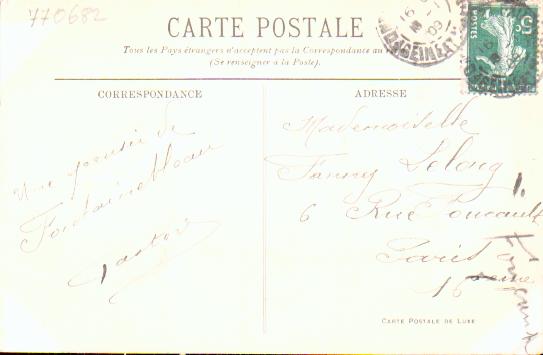 770682
CARTE POSTALE
Tous les Pays étrangers n'acceptent pas la Correspondance au
(Se renseigner à la Poste).
CORRESPONDANCE
ADRESSE
Une pensée de
Fontainebleau
Mademoiselle
Fanny Delong
6 Rue Foucault
Paris
16
CARTE POSTALE DE LUXE